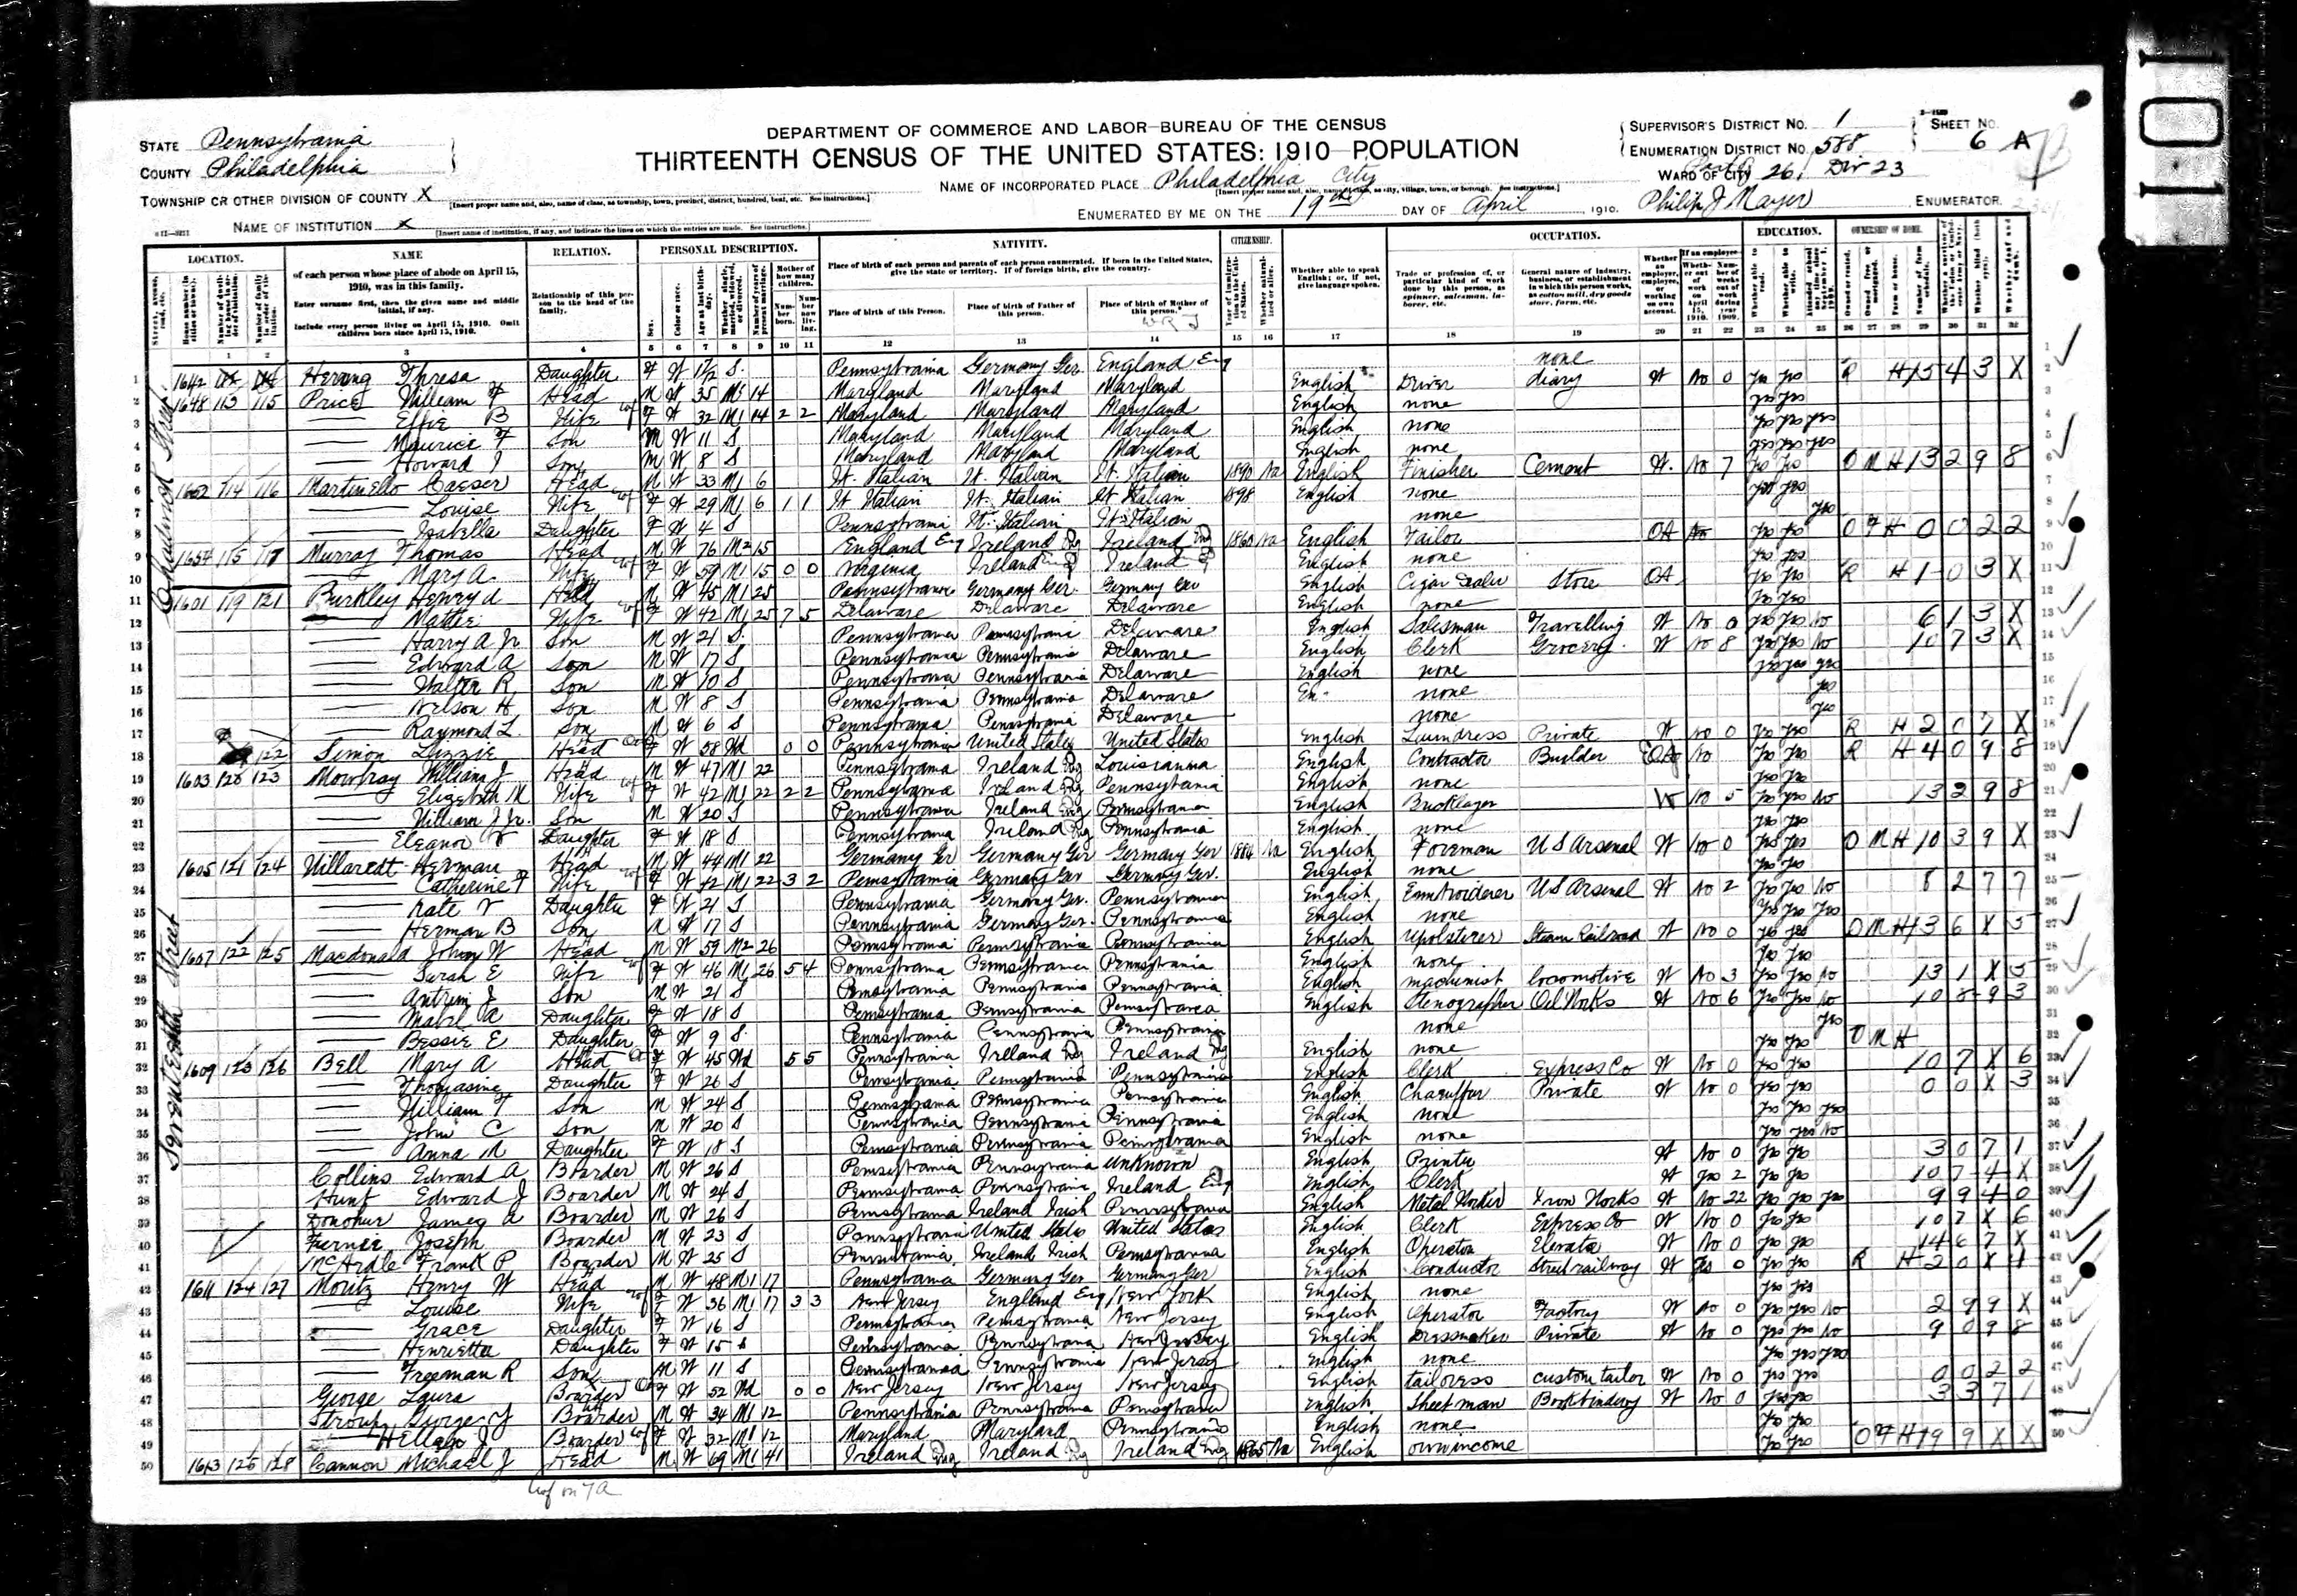 STATE Pennsylvania
COUNTY Philadelphia
TOWNSHIP OR OTHER DIVISION OF COUNTY X
NAME OF INSTITUTION X
DEPARTMENT OF COMMERCE AND LABOR—BUREAU OF THE CENSUS
THIRTEENTH CENSUS OF THE UNITED STATES: 1910—POPULATION
NAME OF INCORPORATED PLACE Philadelphia City
ENUMERATED BY ME ON THE 19th DAY OF April, 1910.
SUPERVISOR'S DISTRICT No. 1
ENUMERATION DISTRICT No. 588
SHEET No. 6 A
WARD OF CITY 26, Div 23
Philip J Mayer ENUMERATOR.
LOCATION. NAME RELATION. PERSONAL DESCRIPTION. NATIVITY. CITIZENSHIP. OCCUPATION. EDUCATION. OWNERSHIP OF HOME.
of each person whose place of abode on April 15, 1910, was in this family.
Enter surname first, then the given name and middle initial, if any.
Include every person living on April 15, 1910. Omit children born since April 15, 1910.
Relationship of this person to the head of the family.
Place of birth of each person and parents of each person enumerated. If born in the United States, give the state or territory. If of foreign birth, give the country.
Place of birth of this Person. Place of birth of Father of this person. Place of birth of Mother of this person.
Whether able to speak English; or, if not, give language spoken.
Chadwick Street
1 1642 Herring Thresa Daughter F W S Pennsylvania Germany Ger England Eng none
2 1648 113 115 Price William F Head M W 35 M1 14 Maryland Maryland Maryland English Driver diary W No 0 Yes Yes R H 1 5 4 3 X
3 Effie B Wife F W 32 M1 14 2 2 Maryland Maryland Maryland English none Yes Yes
4 Maurice F Son M W 11 S Maryland Maryland Maryland English none Yes Yes Yes
5 Howard J Son M W 8 S Maryland Maryland Maryland English none Yes Yes Yes
6 1652 114 116 Martinello Caeser Head M W 33 M1 6 It. Italian It. Italian It. Italian 1890 Na English Finisher Cement W. No 7 Yes Yes O M H 1 3 2 9 8
7 Louise Wife F W 29 M1 6 1 1 It Italian It. Italian It Italian 1898 English none Yes Yes
8 Isabella Daughter F W 4 S Pennsylvania It. Italian It. Italian none Yes
9 1654 115 117 Murray Thomas Head M W 76 M2 15 England Eng Ireland Eng Ireland Eng 1860 Na English Tailor OA No Yes Yes O F H 0 0 2 2
10 Mary A. Wife F W 59 M1 15 0 0 Virginia Ireland Eng Ireland English none Yes Yes
Seventeenth Street
11 1601 119 121 Burkley Henry A Head M W 45 M1 25 Pennsylvania Germany Ger. Germany Ger English Cigar Dealer Store OA Yes Yes R H 1 0 3 X
12 Mattie Wife F W 42 M1 25 7 5 Delaware Delaware Delaware English none Yes Yes
13 Harry A Jr. Son M W 21 S. Pennsylvania Pennsylvania Delaware English Salesman Travelling W No 0 Yes Yes No 6 1 3 X
14 Edward A Son M W 17 S Pennsylvania Pennsylvania Delaware English Clerk Grocery W No 8 Yes Yes No 10 7 3 X
15 Walter R Son M W 10 S Pennsylvania Pennsylvania Delaware English none Yes Yes Yes
16 Wilson H Son M W 8 S Pennsylvania Pennsylvania Delaware En- none Yes
17 Raymond L. Son M W 6 S Pennsylvania Pennsylvania Delaware none Yes
18 122 Simon Lizzie Head F W 58 Wd 0 0 Pennsylvania United States United States English Laundress Private W No 0 Yes Yes R H 2 0 7 X
19 1603 120 123 Mowbray William J Head M W 47 M1 22 Pennsylvania Ireland Eng Louisianna English Contractor Builder No Yes Yes R H 4 0 9 8
20 Elizabeth M Wife F W 42 M1 22 2 2 Pennsylvania Ireland Eng Pennsylvania English none Yes Yes
21 William J Jr. Son M W 20 S Pennsylvania Ireland Eng Pennsylvania English Bricklayer W No 5 Yes Yes No 1 3 2 9 8
22 Eleanor V Daughter F W 18 S Pennsylvania Ireland Eng Pennsylvania English none Yes Yes
23 1605 121 124 Willaredt Herman Head M W 44 M1 22 Germany Ger Germany Ger Germany Ger 1884 Na English Foreman U S Arsenal W No 0 Yes Yes O M H 1 0 3 9 X
24 Catherine F Wife F W 42 M1 22 3 2 Pennsylvania Germany Ger Germany Ger. English none Yes Yes
25 Kate V Daughter F W 21 S Pennsylvania Germany Ger. Pennsylvania English Embroiderer U S Arsenal W No 2 Yes Yes No 8 2 7 7
26 Herman B Son M W 17 S Pennsylvania Germany Ger. Pennsylvania English none Yes Yes Yes
27 1607 122 125 Macdonald John W Head M W 59 M2 26 Pennsylvania Pennsylvania Pennsylvania English Upolsterer Steam Railroad W No 0 Yes Yes O M H 1 3 6 X 5
28 Sarah E Wife F W 46 M1 26 5 4 Pennsylvania Pennsylvania Pennsylvania English none Yes Yes
29 Antrim J Son M W 21 S Pennsylvania Pennsylvania Pennsylvania English machinist locomotive W No 3 Yes Yes No 1 3 1 X 5
30 Mabel A Daughter F W 18 S Pennsylvania Pennsylvania Pennsylvania English Stenographer Oil Works W No 6 Yes Yes No 10 8 9 3
31 Bessie E Daughter F W 9 S Pennsylvania Pennsylvania Pennsylvania none Yes
32 1609 123 126 Bell Mary A Head F W 45 Wd 5 5 Pennsylvania Ireland Eng Ireland Eng English none Yes Yes O M H
33 Thomasine Daughter F W 26 S Pennsylvania Pennsylvania Pennsylvania English Clerk Express Co W No 0 Yes Yes 10 7 X 6
34 William F Son M W 24 S Pennsylvania Pennsylvania Pennsylvania English Chauffur Private W No 0 Yes Yes 0 0 X 3
35 John C Son M W 20 S Pennsylvania Pennsylvania Pennsylvania English none Yes Yes Yes
36 Anna M Daughter F W 18 S Pennsylvania Pennsylvania Pennsylvania English none Yes Yes No
37 Collins Edward A Boarder M W 26 S Pennsylvania Pennsylvania Unknown English Printer W No 0 Yes Yes 3 0 7 1
38 Hunt Edward J Boarder M W 24 S Pennsylvania Pennsylvania Ireland Eng English Clerk W Yes 2 Yes Yes 10 7 4 X
39 Donohue James A Boarder M W 26 S Pennsylvania Ireland Irish Pennsylvania English Metal Worker Iron Works W No 22 Yes Yes Yes 9 9 4 0
40 Joseph Boarder M W 23 S Pennsylvania United States United States English Clerk Express Co W No 0 Yes Yes 10 7 X 6
41 McArdle Frank P Boarder M W 25 S Pennsylvania Ireland Irish Pennsylvania English Operator Elevator W No 0 Yes Yes 14 6 7 X
42 1611 124 127 Moritz Henry W Head M W 48 M1 17 Pennsylvania Germany Ger Germany Ger English Conductor Street railway W Yes 0 Yes Yes R H 2 0 X 4
43 Louise Wife F W 36 M1 17 3 3 New Jersey England Eng New York English none Yes Yes
44 Grace Daughter F W 16 S Pennsylvania Pennsylvania New Jersey English Operator Factory W No 0 Yes Yes No 2 9 9 X
45 Henrietta Daughter F W 15 S Pennsylvania Pennsylvania New Jersey English Dressmaker Private W No 0 Yes Yes No 9 0 9 8
46 Freeman R Son M W 11 S Pennsylvania Pennsylvania New Jersey English none Yes Yes Yes
47 George Laura Boarder F W 52 Wd 0 0 New Jersey New Jersey New Jersey English tailoress custom tailor W No 0 Yes Yes 0 0 2 2
48 Stroup George J Boarder M W 34 M1 12 Pennsylvania Pennsylvania Pennsylvania English Sheet man Bookbindery W No 0 Yes Yes 3 3 7 1
49 Boarder F W 32 M1 12 Maryland Maryland Pennsylvania English none Yes Yes
50 1613 125 128 Cannon Michael J Head M W 69 M1 41 Ireland Eng Ireland Eng Ireland Eng 1865 Na English own income Yes Yes O F H 19 9 X X
wf on 7A